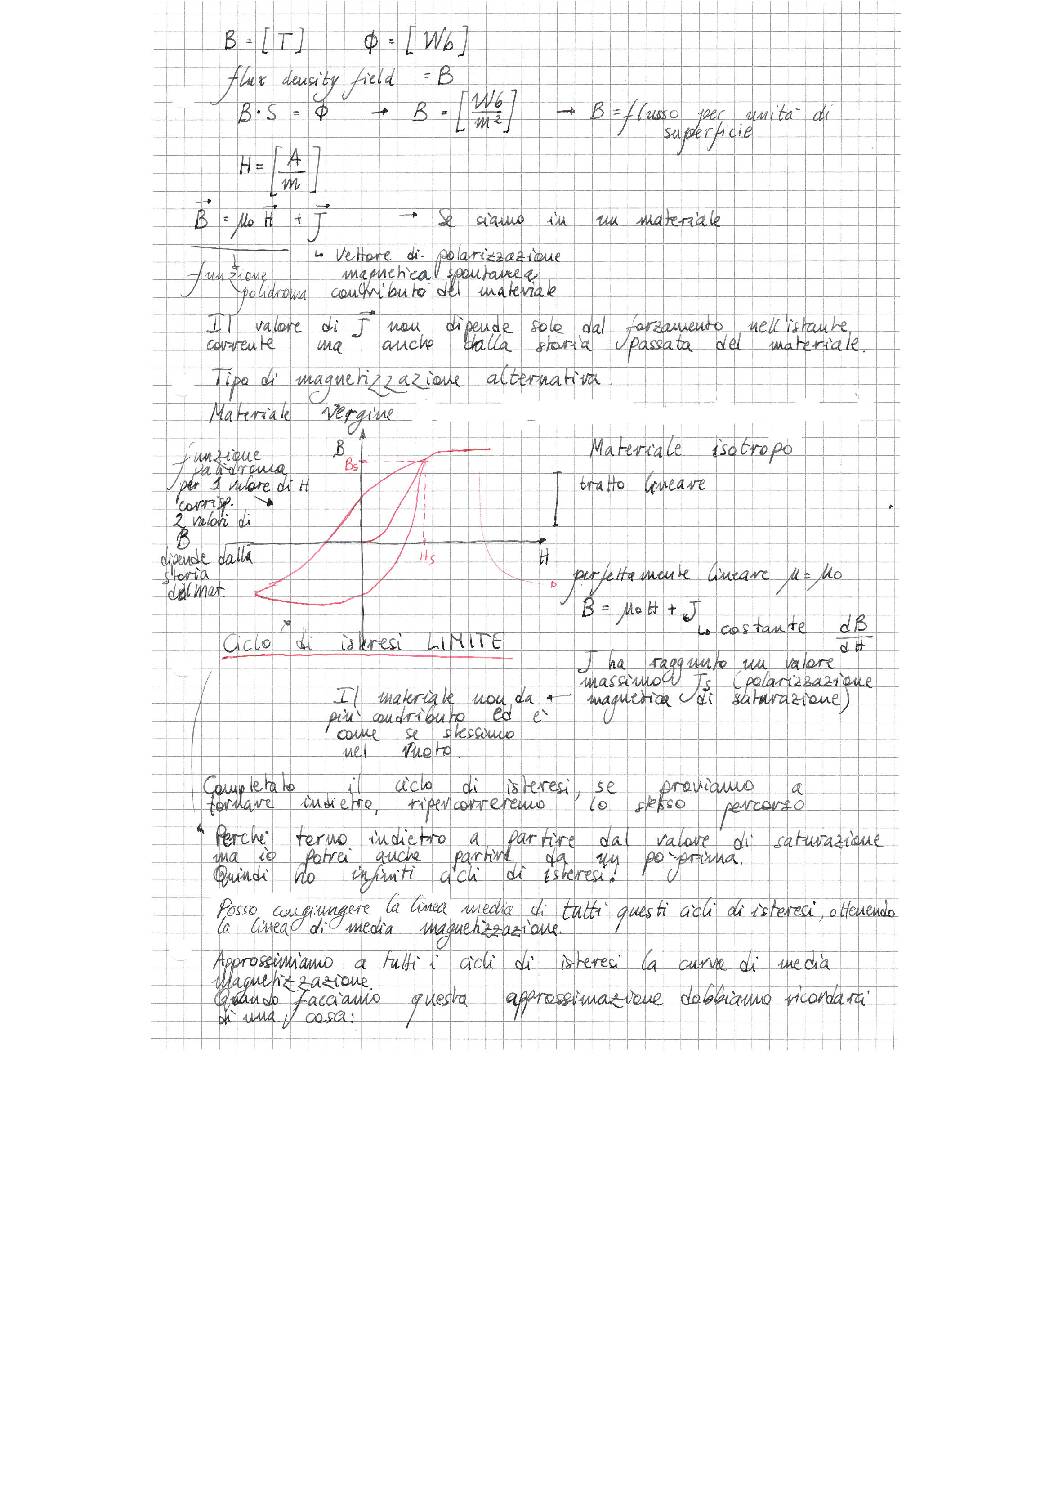 B = [T]   Φ = [Wb]
flux density field = B
B·S = Φ → B = [Wb/m²] → B = flusso per unità di
superficie
H = [A/m]
B⃗ = μ₀ H⃗ + J⃗ → Se siamo in un materiale
↳ Vettore di polarizzazione
funzione magnetica spontanea
polidroma contributo del materiale
Il valore di J⃗ non dipende solo dal forzamento nell'istante
corrente ma anche dalla storia passata del materiale.
Tipo di magnetizzazione alternativa
Materiale vergine
funzione
polidroma
per 1 valore di H
corrisp.
2 valori di
B
dipende dalla
storia
del mat.
B
Bs
Hs
H
Materiale isotropo
tratto lineare
perfettamente lineare μ = μ₀
B = μ₀H + J
↳ costante dB/dH
Ciclo di isteresi LIMITE
J ha raggiunto un valore
massimo Js (polarizzazione
magnetica di saturazione)
Il materiale non da ←
più contributo ed è
come se stessimo
nel vuoto
Completato il ciclo di isteresi, se proviamo a
tornare indietro, ripercorreremo lo stesso percorso
Perché torno indietro a partire dal valore di saturazione
ma io potrei anche partire da un po' prima.
Quindi ho infiniti cicli di isteresi.
Posso congiungere la linea media di tutti questi cicli di isteresi, ottenendo
la linea di media magnetizzazione.
Approssimiamo a tutti i cicli di isteresi la curva di media
magnetizzazione.
Quando facciamo questa approssimazione dobbiamo ricordarci
di una cosa: